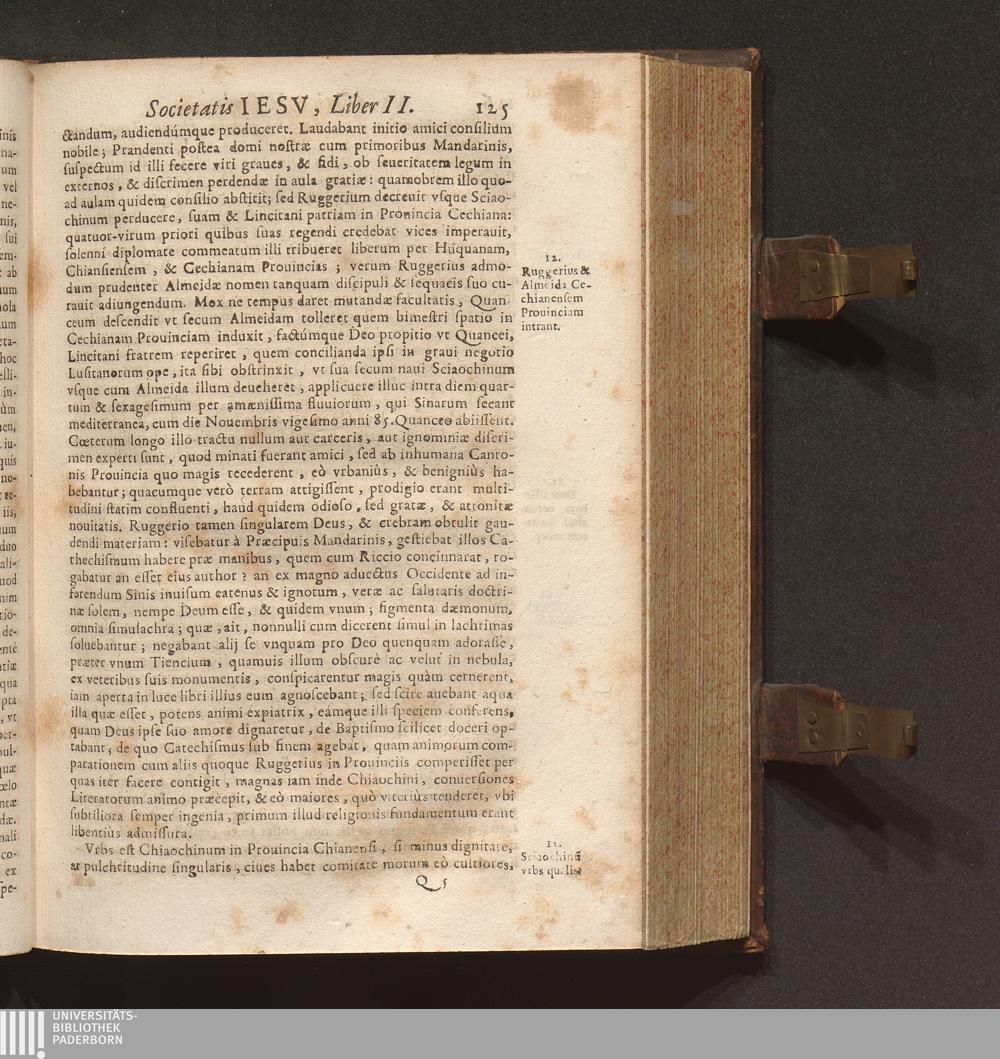 Societatis IESV, Liber II. 125
ctandum, audiendúmque produceret. Laudabant initio amici consilium
nobile; Prandenti postea domi nostræ cum primoribus Mandarinis,
suspectum id illi fecere viri graues, & fidi, ob seueritatem legum in
externos, & discrimen perdendæ in aula gratiæ: quamobrem illo quo-
ad aulam quidem consilio abstitit; sed Ruggerium decreuit vsque Sciao-
chinum perducere, suam & Lincitani patriam in Prouincia Cechiana:
quatuor-virum priori quibus suas regendi credebat vices imperauit,
solenni diplomate commeatum illi tribueret liberum per Huquanam,
Chiansiensem, & Cechianam Prouincias; verum Ruggerius admo-
dum prudenter Almeidæ nomen tanquam discipuli & sequacis suo cu-
rauit adiungendum. Mox ne tempus daret mutandæ facultatis, Quan-
ceum descendit vt secum Almeidam tolleret quem bimestri spatio in
Cechianam Prouinciam induxit, factúmque Deo propitio vt Quancei,
Lincitani fratrem reperiret, quem concilianda ipsi in graui negotio
Lusitanorum ope, ita sibi obstrinxit, vt sua secum naui Sciaochinum
vsque cum Almeida illum deueheret, applicuere illuc intra diem quar-
tum & sexagesimum per amœnissima fluuiorum, qui Sinarum secant
mediterranea, cum die Nouembris vigesimo anni 85. Quanceo abiissent.
Cœterum longo illo tractu nullum aut carceris, aut ignominiæ discri-
men experti sunt, quod minati fuerant amici, sed ab inhumana Canto-
nis Prouincia quo magis recederent, eò vrbaniùs, & benigniùs ha-
bebantur; quacumque verò terram attigissent, prodigio erant multi-
tudini statim confluenti, haud quidem odioso, sed gratæ, & attonitæ
nouitatis. Ruggerio tamen singularem Deus, & crebram obtulit gau-
dendi materiam: visebatur à Præcipuis Mandarinis, gestiebat illos Ca-
thechismum habere præ manibus, quem cum Riccio concinnarat, ro-
gabatur an esset eius author? an ex magno aduectus Occidente ad in-
ferendum Sinis inuisum eatenus & ignotum, veræ ac salutaris doctri-
næ solem, nempe Deum esse, & quidem vnum; figmenta dæmonum,
omnia simulachra; quæ, ait, nonnulli cum dicerent simul in lachrimas
soluebantur; negabant alij se vnquam pro Deo quenquam adorasse,
præter vnum Tiencium, quamuis illum obscurè ac velut in nebula,
ex veteribus suis monumentis, conspicarentur magis quàm cernerent,
iam aperta in luce libri illius eum agnoscebant; sed scire auebant aqua
illa quæ esset, potens animi expiatrix, eámque illi speciem conferens,
quam Deus ipse suo amore dignaretur, de Baptismo scilicet doceri op-
tabant; de quo Catechismus sub finem agebat, quam animorum com-
parationem cum aliis quoque Ruggerius in Prouinciis comperisset per
quas iter facere contigit, magnas iam inde Chiaochini, conuersiones
Literatorum animo præcepit, & eò maiores, quò vlteriùs tenderet, vbi
subtiliora semper ingenia, primum illud religionis fundamentum erant
libentiùs admissura.
Vrbs est Chiaochinum in Prouincia Chianensi, si minus dignitate,
at pulchritudine singularis, ciues habet comitate morum eò cultiores,
12.
Ruggerius &
Almeida Ce-
chianensem
Prouinciam
intrant.
Sciaochinũ
vrbs qualis.
UNIVERSITÄTS-
BIBLIOTHEK
PADERBORN